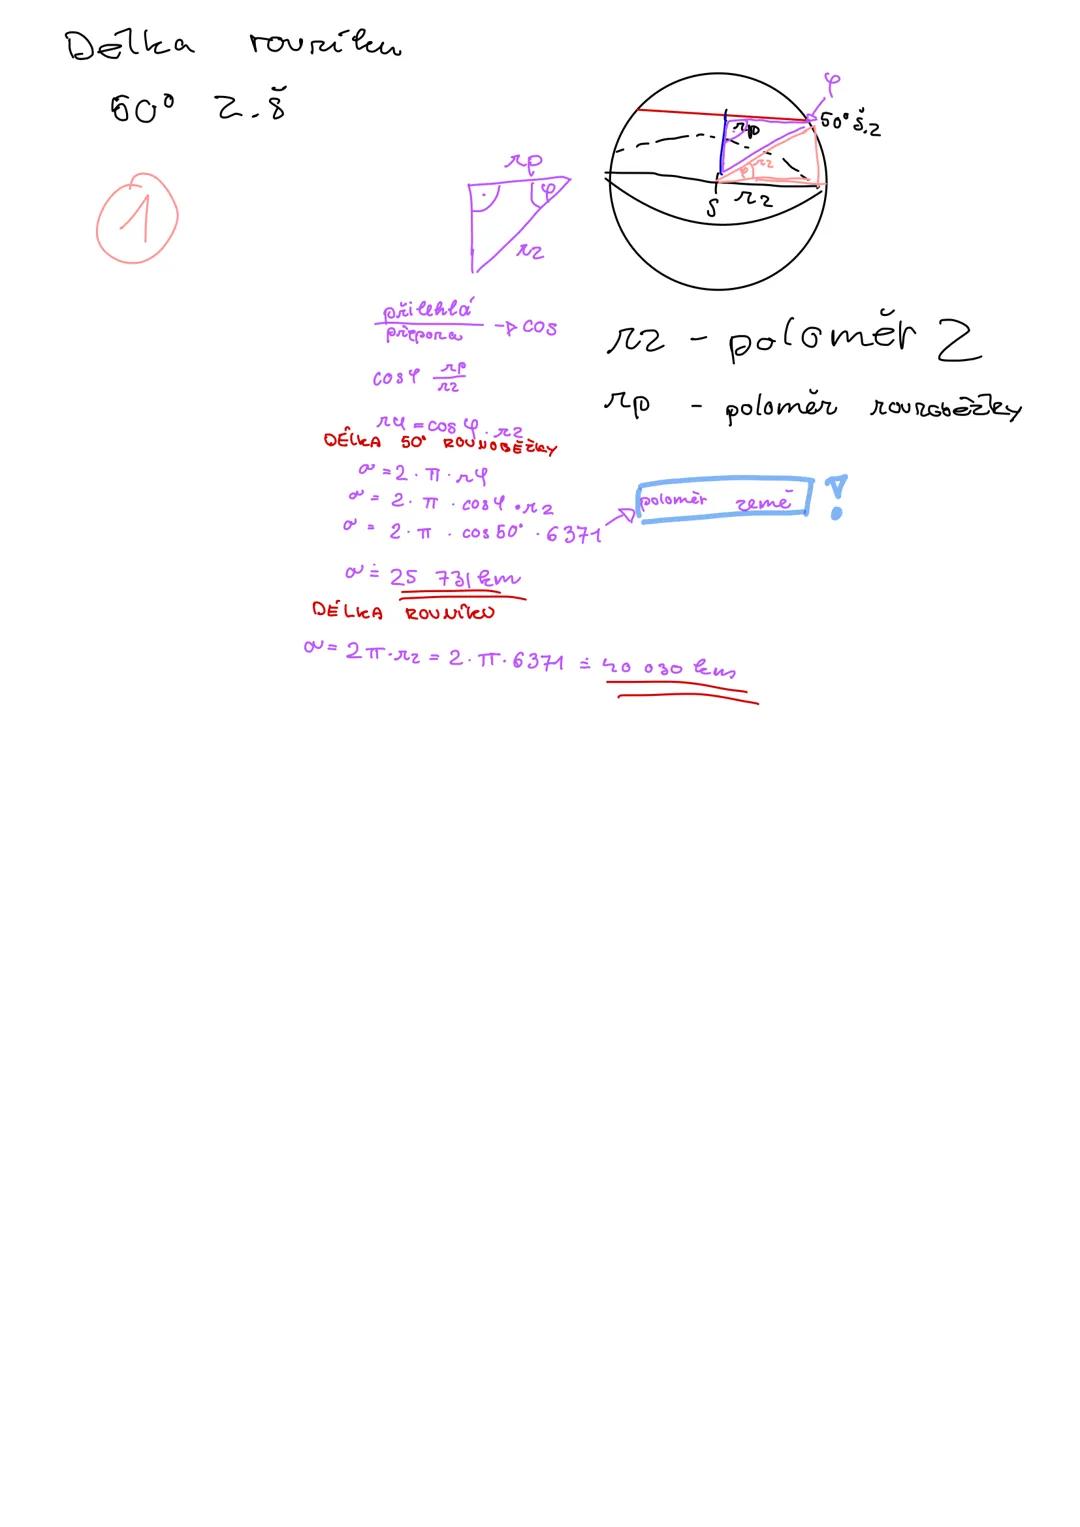 Délka rovníku
50° z.š
1
φ
50° š.z
rp
rz
φ
S rz
rp
φ
rz
přilehlá
přepona
→ cos
cosφ rp
rz
rφ = cosφ . rz
DÉLKA 50° ROVNOBĚŽKY
o = 2 . π . rφ
o = 2 . π . cosφ . rz
o = 2 . π . cos50° . 6371
poloměr země !
o ≐ 25 731 km
DÉLKA ROVNÍKU
o = 2π.rz = 2.π.6371 ≐ 40 030 km
rz - poloměr Z
rp - poloměr rovnoběžky